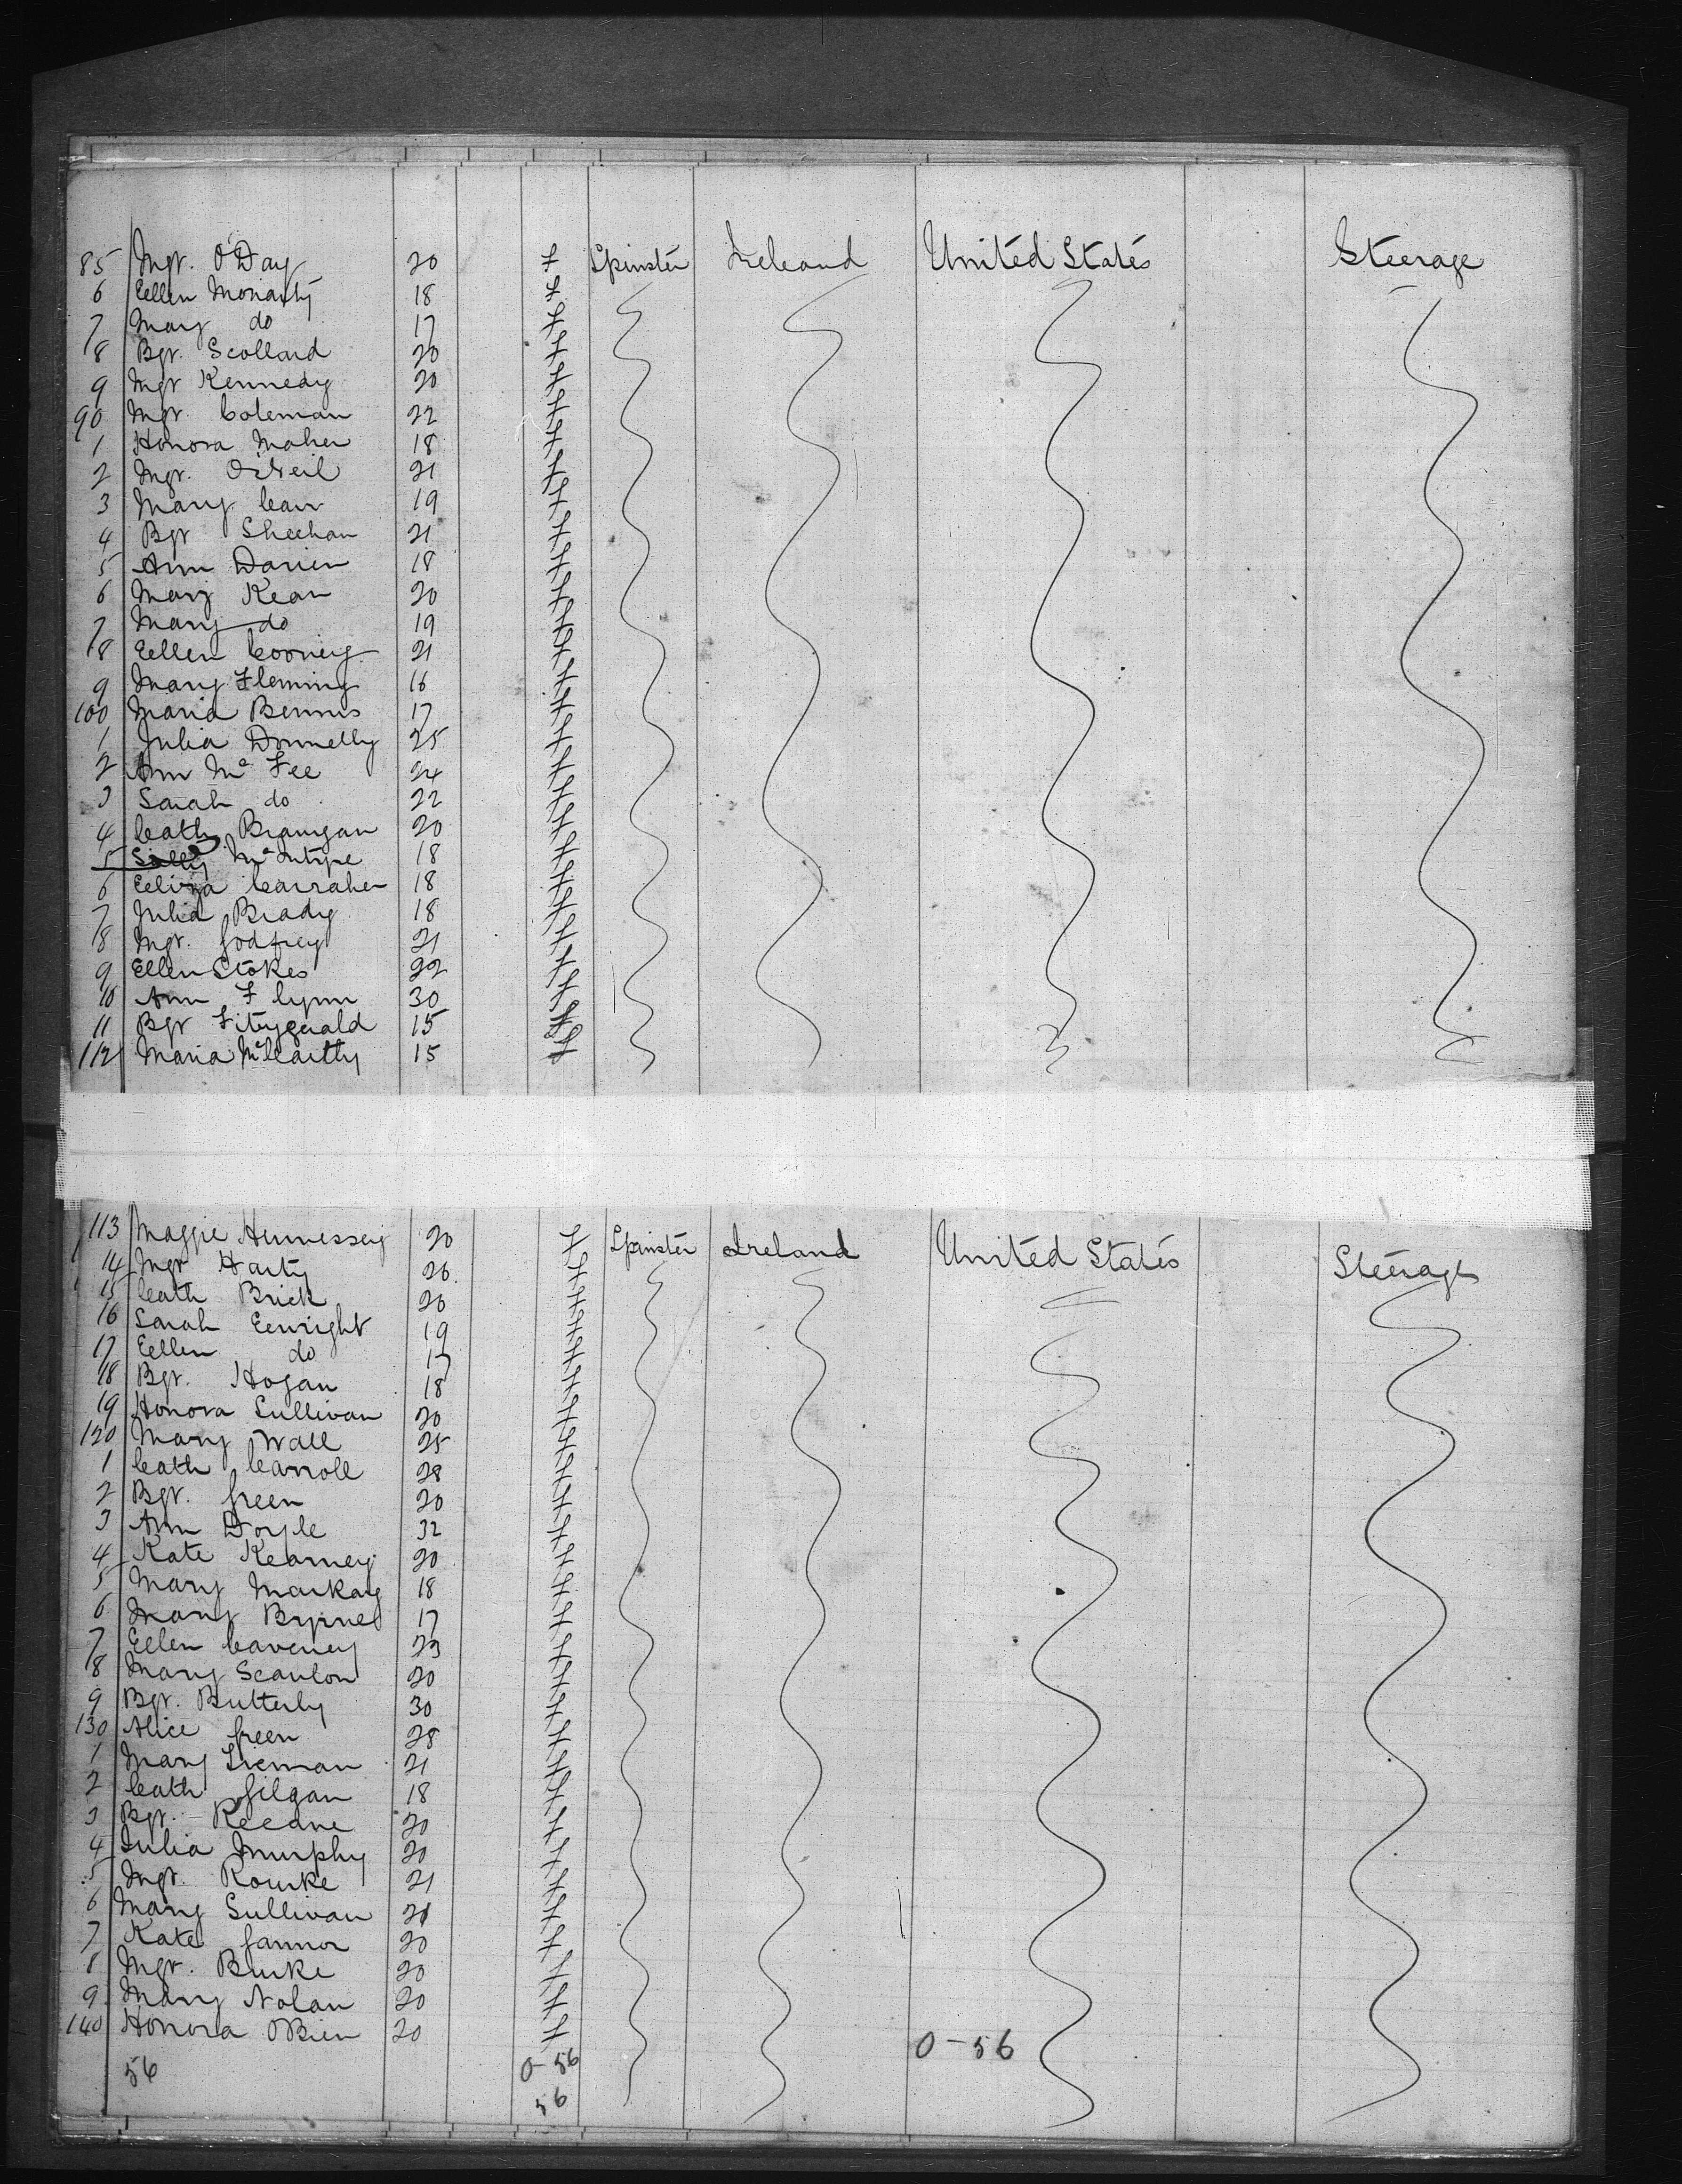 85 Mgt. O'Day 20 F Spinster Ireland United States Steerage
6 Ellen Moriarty 18 F
7 Mary do 17 F
8 Bgt. Scollard 20 F
9 Mgt Kennedy 20 F
90 Mgt. Coleman 22 F
1 Honora Maher 18 F
2 Mgt. O'Neil 21 F
3 Mary Carr 19 F
4 Bgt Sheehan 21 F
5 Ann Darien 18 F
6 Mary Kean 20 F
7 Mary do 19 F
8 Ellen Cooney 21 F
9 Mary Fleming 16 F
100 Maria Bennis 17 F
1 Julia Donnelly 25 F
2 Ann Mc Fee 24 F
3 Sarah do 22 F
4 Cath Branigan 20 F
5 Sally McIntyre 18 F
6 Eliza Carraher 18 F
7 Julia Brady 18 F
8 Mgt. Godfrey 21 F
9 Ellen Stokes 22 F
10 Ann Flynn 30 F
11 Bgt Fitzgerald 15 F
112 Maria McCarthy 15 F
113 Maggie Hennessey 20 F Spinster Ireland United States Steerage
14 Mgt Harty 26 F
15 Cath Brick 20 F
16 Sarah Enright 19 F
17 Ellen do 17 F
18 Bgt. Hogan 18 F
19 Honora Sullivan 20 F
120 Mary Wall 25 F
1 Cath Carroll 28 F
2 Bgt. Green 20 F
3 Ann Doyle 32 F
4 Kate Kearney 20 F
5 Mary Markay 18 F
6 Mary Byrne 17 F
7 Ellen Caveney 23 F
8 Mary Scanlon 20 F
9 Bgt. Butterly 30 F
130 Alice Green 28 F
1 Mary 21 F
2 Cath Gilgan 18 F
3 Bgt. Keeane 20 F
4 Julia Murphy 20 F
5 Mgt. Rourke 21 F
6 Mary Sullivan 21 F
7 Kate Gannon 20 F
8 Mgt. Burke 20 F
9 Mary Nolan 20 F
140 Honora OBrien 20 F
56 0-56 0-56
56